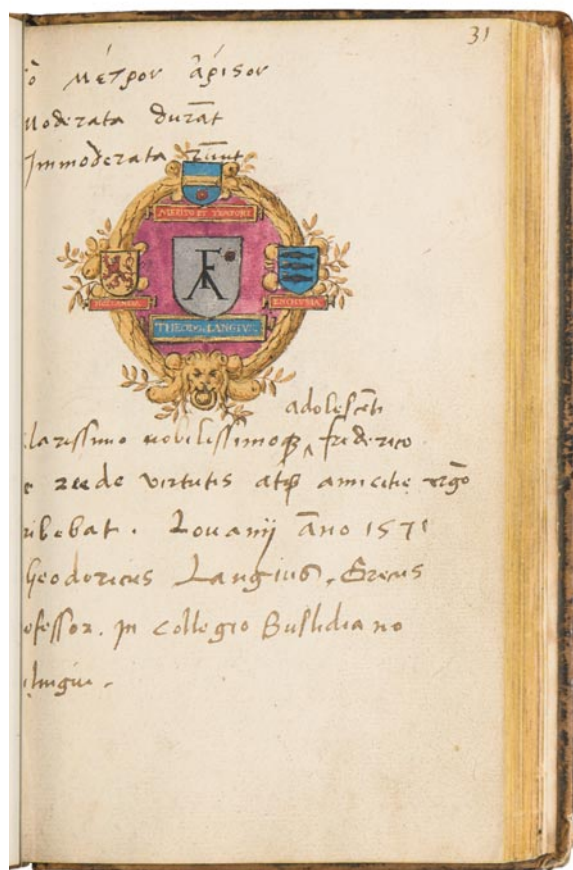 31
ὸ μέτρον ἄριστον
Moderata durāt
Immoderata ruūt
MERITO ET TEMPORE
HOLLANDIA
ENCHVSIA
THEOD. LANGIVS
adolescēti
larissimo nobilissimoqꝫ ‸ friderico
e rēde virtutis atqꝫ amicitie ergō
ribebat. Louanij āno 1571
heodoricus Langius, Grecus
ofessor. In collegio Buslidiano
ilingui.